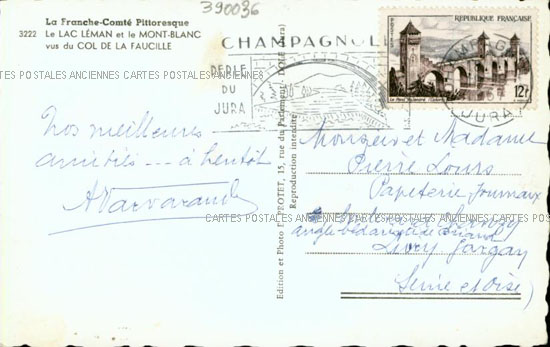 390036
La Franche-Comté Pittoresque
3222 Le LAC LÉMAN et le MONT-BLANC
vus du COL DE LA FAUCILLE
CHAMPAGNOLE
PERLE
DU
JURA
RÉPUBLIQUE FRANÇAISE
12f
JURA
CARTES POSTALES ANCIENNES CARTES POSTALES ANCIENNES CARTES POSTALES ANCIENNES
Nos meilleures
amitiés --- à bientôt
Edition et Photo PROTET, 15, rue du Parlement - DOLE (Jura)
Reproduction interdite
Monsieur et Madame
Pierre Lours
Papeterie-Journaux
CARTES POSTALES ANCIENNES CARTES POSTALES ANCIENNES
angle Bd
Livry Gargan
(Seine et Oise)